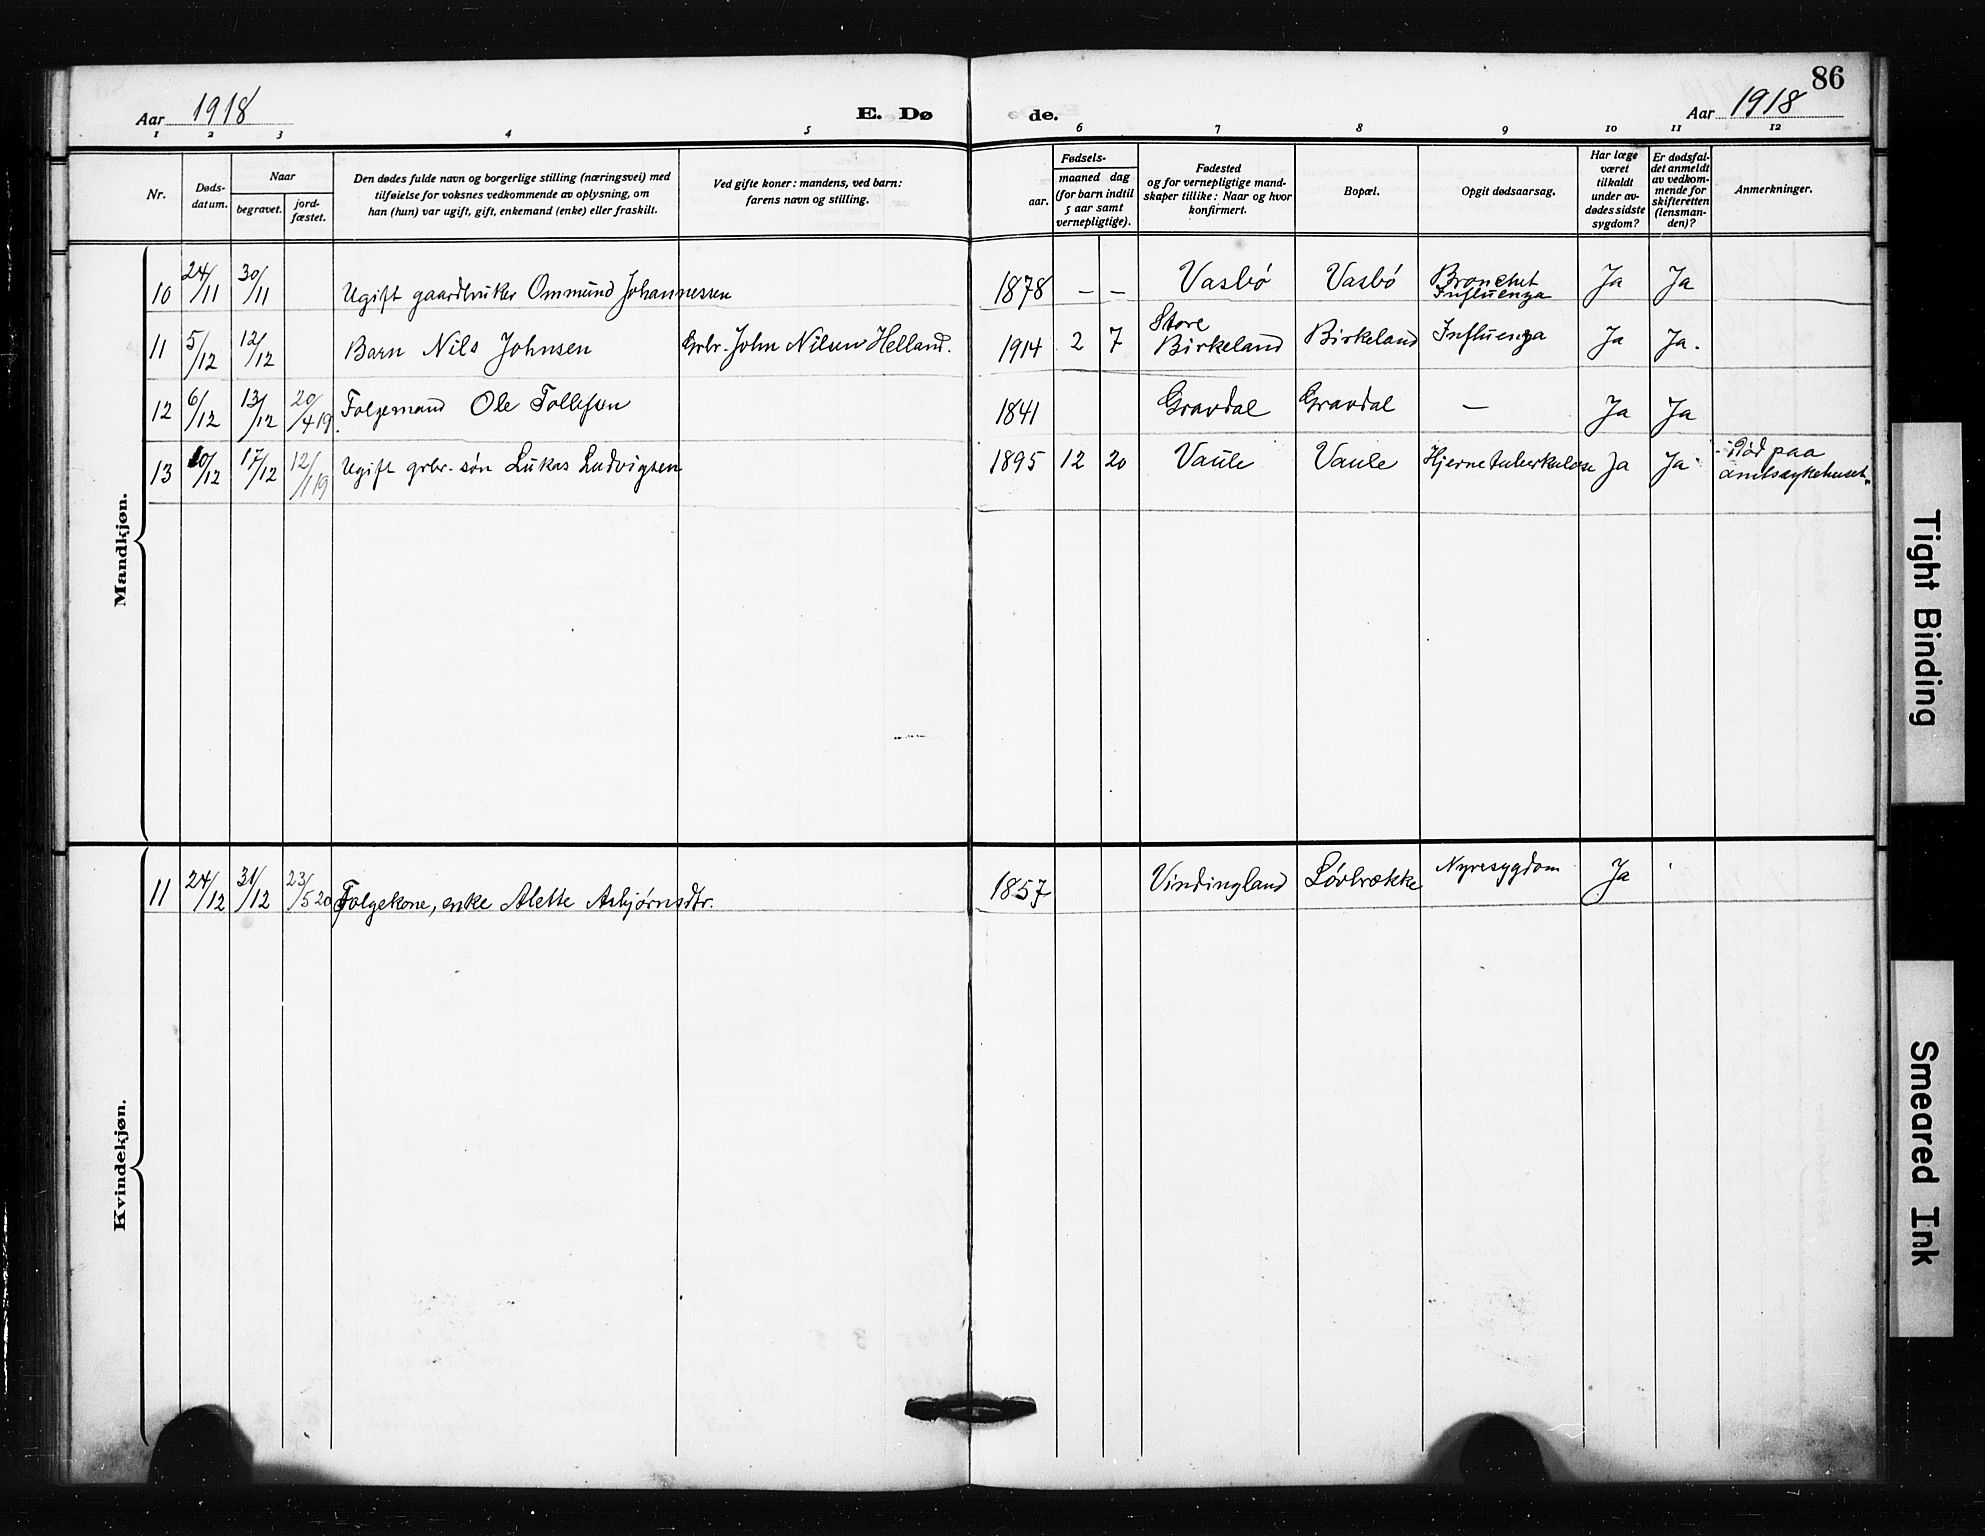 86
Aar 1918 E. Døde. Aar 1918
1 2 3 4 5 6 7 8 9 10 11 12
Nr.
Døds-
datum.
Naar
begravet.
jord-
fæstet.
Den dødes fulde navn og borgerlige stilling (næringsvei) med
tilføielse for voksnes vedkommende av oplysning, om
han (hun) var ugift, gift, enkemand (enke) eller fraskilt.
Ved gifte koner: mandens, ved barn:
farens navn og stilling.
Fødsels-
aar.
maaned dag
(for barn indtil
5 aar samt
vernepligtige).
Fødested
og for vernepligtige mand-
skaper tillike: Naar og hvor
konfirmert.
Bopæl.
Opgit dødsaarsag.
Har læge
været
tilkaldt
under av-
dødes sidste
sygdom?
Er dødsfal-
det anmeldt
av vedkom-
mende for
skifteretten
(lensman-
den)?
Anmerkninger.
Mandkjøn.
10 24/11 30/11 Ugift gaardbruker Ommund Johannessen 1878 – – Vasbø Vasbø Bronchit Influenza Ja Ja
11 5/12 12/12 Barn Nils Johnsen Grbr. John Nilsen Helland. 1914 2 7 Store Birkeland Birkeland Influenza Ja Ja.
12 6/12 13/12 20/4 19. Folgemand Ole Tollefsen 1841 Gravdal Gravdal – Ja Ja
13 10/12 17/12 12/1 19 Ugift grbr. søn Lukas Ludvigsen 1895 12 20 Vaule Vaule Hjernetuberkulose Ja Ja Død paa
amtssykehuset.
Kvindekjøn.
11 24/12 31/12 23/5 20 Folgekone, enke Alette Asbjørnsdtr. 1857 Vindingland Løvbrække Nyresygdom Ja
Tight Binding
Smeared Ink